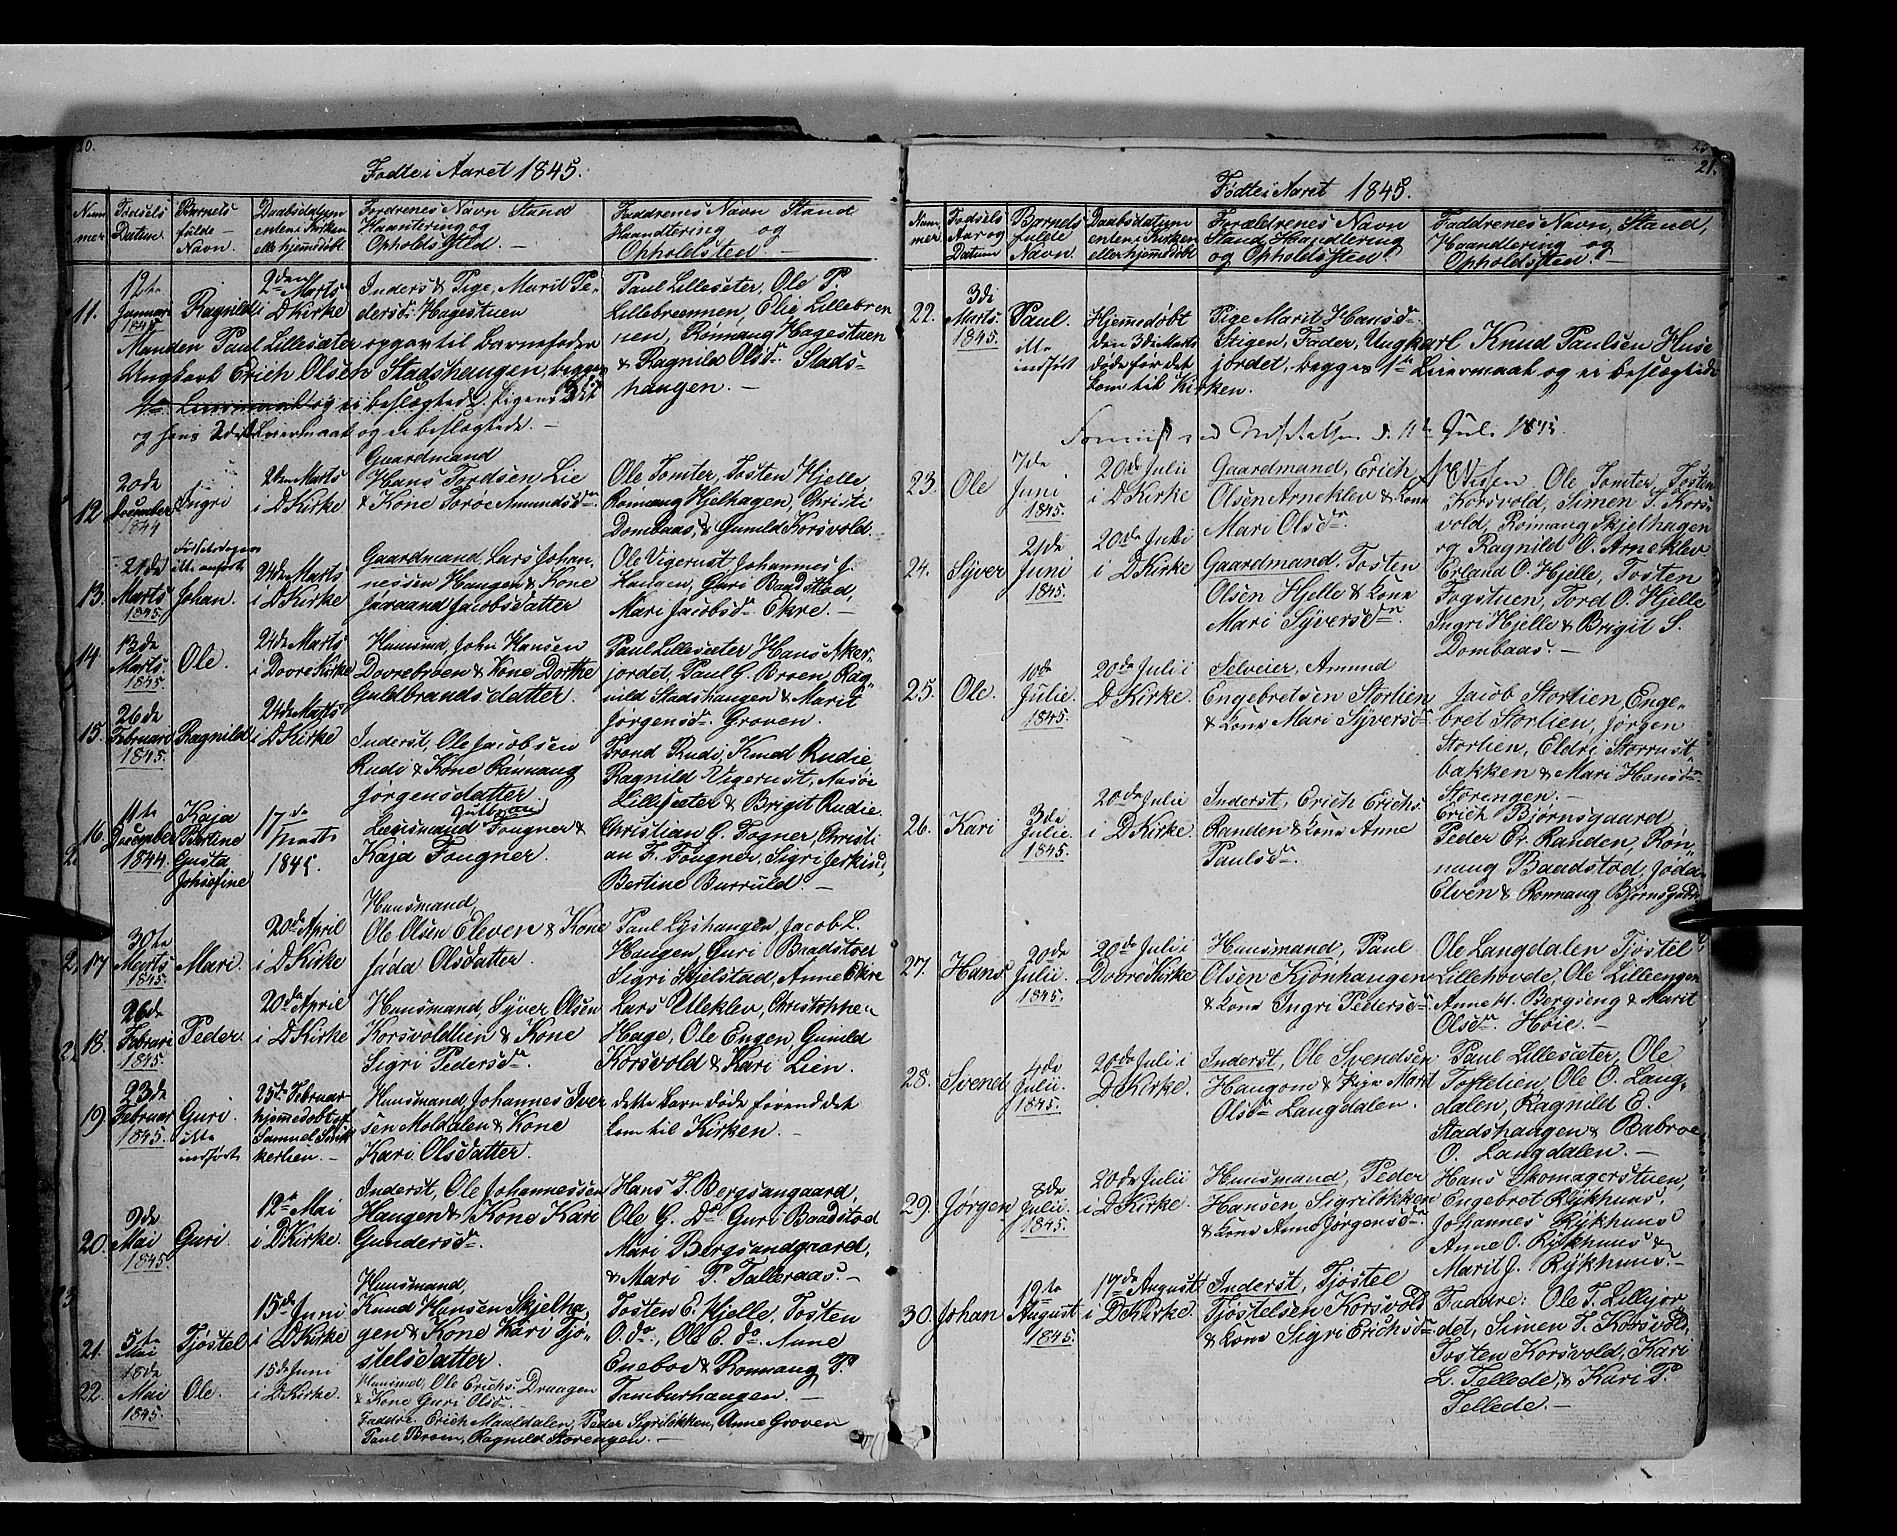 20.
Fødte i Aaret 1845.
Num
mer
Fødsels
Datum.
Barnets
fulde
Navn.
Daabsdatum
enten i Kirken
eller hjemmedøbt
Forældrenes Navn Stand
Haandtering og
Opholdssted. —
Faddrenes Navn Stand
Haandtering og
Opholdssted. —
11.
12te
Januari
Ragnild
2den Marts
i DKirke
Inders & Pige, Marit Pe-
dersd: Hagestuen
Manden Paul Lillesæter opgav til Barnefader
Ungkarl Erich Olsen Stadshaugen, begges
1te Leiermaal og ei beslægtede. Pigens 3die
og hans 2det Leiermaal og ei beslægtede. —
Paul Lillesæter, Ole P.
Lillebrennen, Olie Lillebren
nen, Rønnaug Hagestuen
& Ragnild Olsd: Stads-
haugen. —
12
20de
December
1844
Ingri
2den Marts
i DKirke
Gaardmand
Hans Tordsen Lie
& Kone Toroe Amundsdr.
Ole Tomter, Tosten Hjelle
Romaug Hjelhagen, Christi
Dombaas, & Gunild Korsvold.
13.
21de
Marts
1845.
Johan.
24de Marts
i DKirke
Gaardmand Lars Johan-
nessen Haugen & Kone
Jøraand Jacobsdatter
Ole Vigerust Johannes J.
Haugen, Guri Baadstød,
Mari Jacobsdr Ekre. —
14
13de
Marts
1845.
Ole.
24de Marts
i Dovre Kirke
Huusmd, John Hansen
Dovrebøen & Kone Dorthe
Guldbrandsdatter.
Paul Lillesæter Hans Aker-
jordet, Paul G. Broen, Rag-
nild Stadshaugen & Marit
Jørgensdr. Groven.
15.
26de
Februari
1845.
Ragnild
24de Marts
i DKirke
Inderst, Ole Jacobsen
Rudi & Kone Rønnaug
Jørgensdatter
Trond Rudi, Knud Rudie
Ragnild Vigerust,
Lillesæter & Brigit Rudie.
16.
11te
December
1844.
Kaja
Bertine
Gusta
Johsefine
17de
Marts
1845.
Fougner &
Kaja Fougner.
Christian G. Fogner, Christi
an F. Fougner, Sigri Jerkind,
Bertine Burruld. —
17
30te
Marts
1845.
Mari.
20de April
i DKirke
Huusmand,
Ole Olsen Eleven & Kone
Jøda Olsdatter.
Paul Lyshaugen Jacob L.
Haugen, Guri Baadstøer
Sigri Hjelstad, Anne Ekre
18.
26de
Febrari
1845.
Peder.
20de April
i DKirke
Huusmand, Syver Olsen
Korsvoldlien & Kone
Sigri Pedersdr.
Lars Uleklev, Christophe-
Hage, Ole Engen, Gunild
Korsvold & Kari Lien.
19.
23de
Februar
1845.
Guri.
ikke
indført
25de Februar
hjemmedøbt af
Samuel
kerlien. —
Huusmand, Johannes Iver
sen Moldalen & Kone
Kari Olsdatter.
dette Barn døde førend det
kom til Kirken. —
20.
9de
Mai
1845.
Guri
12te Mai
i DKirke.
Inderst, Ole Johannessen
Haugen & Kone Kari
Gundersdr.
Hans T. Bergsangaard,
Ole G. Do. Guri Baadstød
Mari Bergsandgaard,
& Mari P. Talleraas. —
21.
5te
Mai
Tjøstel
15de Juni
i DKirke
Huusmand,
Knud Hansen Skjelha-
gen & Kone Kari Tjø-
stelsdatter.
Tosten E. Hjelle, Tosten
O. do, Ole E. do. Anne
Enebo & Ronnaug P.
Tamburhaugen. —
22.
18de
Mai
1845.
Ole.
15de Juni
i DKirke.
Huusmd, Ole Erichs. Draagen
& Kone Guri Olsdr. —
Faddre. Erich Maaldalen, Peder Sigriløkken, Anne Groven
Paul Broen, Ragnild Storengen. —
21.
Fødte i Aaret 1845.
Num-
mer.
Fødsels
Aar og
Datum
Barnets
fulde
Navn.
Daabsdatum
enten i Kirken
eller hjemmedøbt
Forældrenes Navn
Stand Haandtering
og Opholdssted
Faddrenes Navn, Stand,
Haandtering og
Opholdssted.
22.
3di
Marts.
1845.
Paul.
ikke
indført
Hjemmedøbt
den 3de Marts
døde før det
kom til Kirken.
Pige Marit Hansdr.
Stigen, Fader, Ungkarl Knud Paulsen Huse
jordet, begges 1te Leiermaal og ei beslægtede
23.
7de
Juni
1845.
Ole
20de Julii
i DKirke
Gaardmand, Erich
Olsen Arneklev & Kone
Mari Olsdr.
Ole Tomter, Tosten
Korsvold, Simen T. Kors-
vold, Romaug Skjelhagen
og Ragnild O. Arneklev
24.
21de
Juni
1845.
Syver
20de Julii
i DKirke
Gaardmand, Tosten
Olsen Hjelle & Kone
Mari Syversdr.
Erland O. Hjelle, Tosten
Fogstuen, Tord O. Hjelle
Ingri Hjelle & Brigit S.
Dombaas. —
25.
10de
Julie
1845.
Ole.
20de Julii i
DKirke.
Selveier, Amund
Engebretsen Storlien
& Kone Mari Syversdr
Jacob Storlien, Enge-
bret Storlien, Jørgen
Storlien, Eldri Storrust-
bakken & Mari Hansdr
Storengen. —
26.
3die
Julie.
1845.
Kari
20de Julii
i DKirke.
Inderst, Erich Erichs
Randen & Kone Anne
Paulsdr.
Erich Bjørnsgaard
Peder Er. Randen, Røn-
naug Baadstød, Jøda
Elven & Ronnaug Bjørnsgaard
27.
20de
Julii.
1845.
Hans
20de Julii i
Dovre Kirke
Huusmand, Paul
Olsen Kjønhaugen
& Kone Ingri Pedersdr.
Ole Langdalen Tjøstel
Lillehovde, Ole Lilleengen
Anne H. Bergseng & Marit
Olsdr. Høie. —
28.
4de
Julii.
1845.
Svend
20de Julii i
DKirke.
Inderst, Ole Svendsen
Haugom & Pige Marit
Olsdr Langdalen.
Paul Lillesæter, Ole
Toftelien, Ole O. Lang-
dalen, Ragnild E.
Stadshaugen &
O. Langdalen. —
29.
8de
Julii.
1845.
Jørgen
20de Julii
i DKirke.
Huusmand, Peder
Hansen, Sigriløkken
& Kone Anne Jørgensdr.
Hans Skomagerstuen,
Engebret Rykhuus.
Johannes Rykhuus
Anne O. Rykhuus &
Marit J. Rykhuus. —
30.
12te
August
1845.
Johan
17de August
i DKirke
Inderst, Tjøstel
Tjøstelsen Korsvold
& Kone Sigri Erichsdr
Faddre: Ole T. Lillejor-
det, Simen T. Korsvold,
Tosten Korsvold, Kari
L. Tellede, & Kari P.
Tellede. —